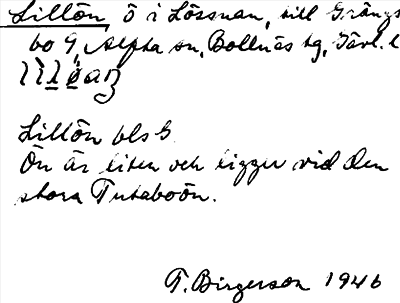 Lillön ö i Lössnan, till Grängs
bo 9, Alfta sn, Bollnäs tg, Gävl. l

Lillön bls G.
Ön är liten och ligger vid den
stora Tutaboön.
T. Birgerson 1946